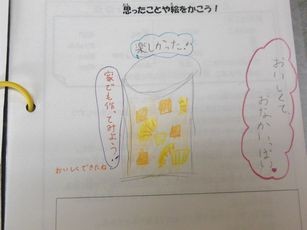 思ったことや絵をかこう！
楽しかった!
おいしくて、
おなかいっぱい
家でも作ってみよう!
おいしくできたね